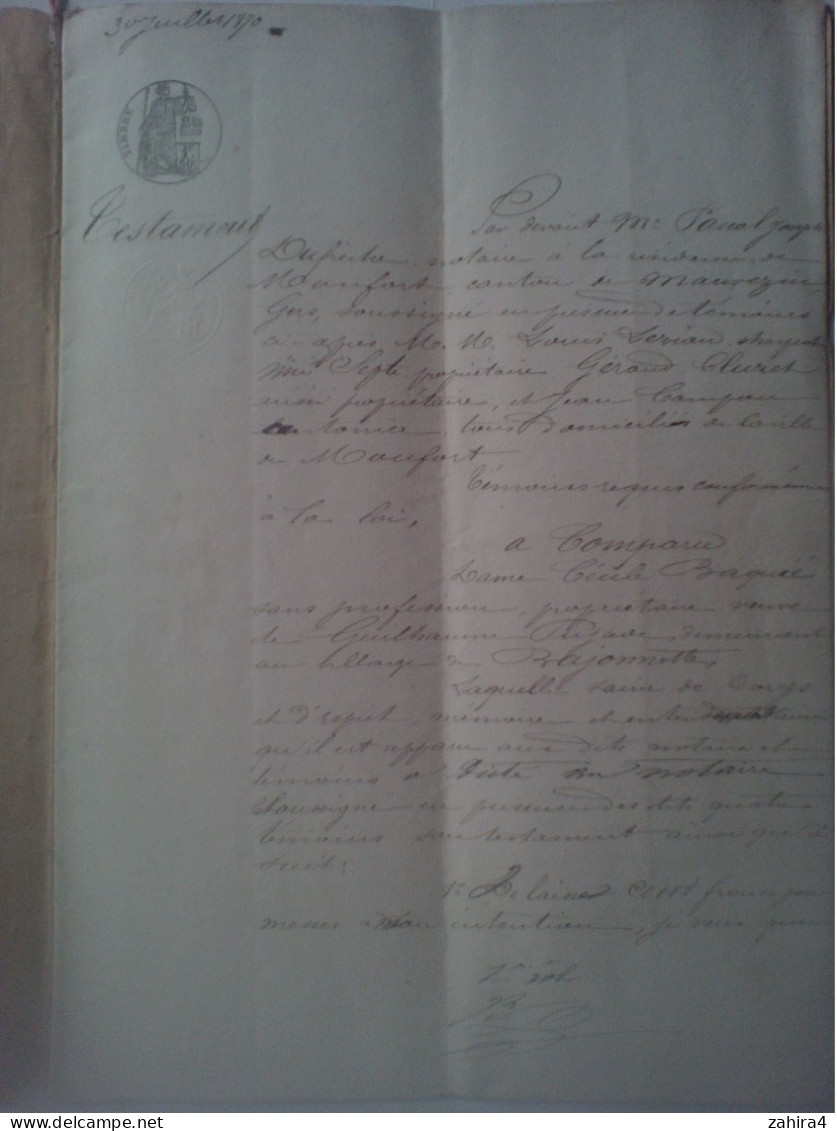 30 Juillet 1870
Testament
Par devant Me Pascal Joseph
notaire à la résidence de
Monfort canton de Mauvezin
Gers, soussigné en présence de témoins
ci-après M.M. Louis
propriétaire Gérand
propriétaire, et Jean
tous domiciliés de la ville
de Monfort
témoins requis conformément
à la loi,
a Comparu
Dame Cécile Baquié
sans profession, propriétaire veuve
de Guilhaume demeurant
au village de Bajonnette,
Laquelle saine de Corps
et d'esprit, mémoire et entendement ainsi
qu'il est apparu aux dits notaire et
témoins a Dicté au notaire
Soussigné en présence des dits quatre
témoins son testament ainsi qu'il
suit:
1° Je laisse cent francs pour
messes à mon intention, je veux que
1er rôle
zahira4